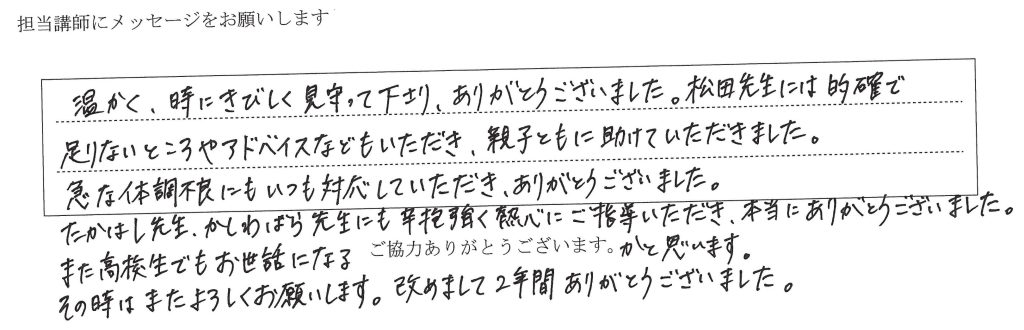 担当講師にメッセージをお願いします
温かく、時にきびしく見守って下さり、ありがとうございました。松田先生には的確で
足りないところやアドバイスなどもいただき、親子ともに助けていただきました。
急な体調不良にもいつも対応していただき、ありがとうございました。
たかはし先生、かしわばら先生にも辛抱強く熱心にご指導いただき、本当にありがとうございました。
また高校生でもお世話になる ご協力ありがとうございます。かと思います。
その時はまたよろしくお願いします。改めまして2年間ありがとうございました。